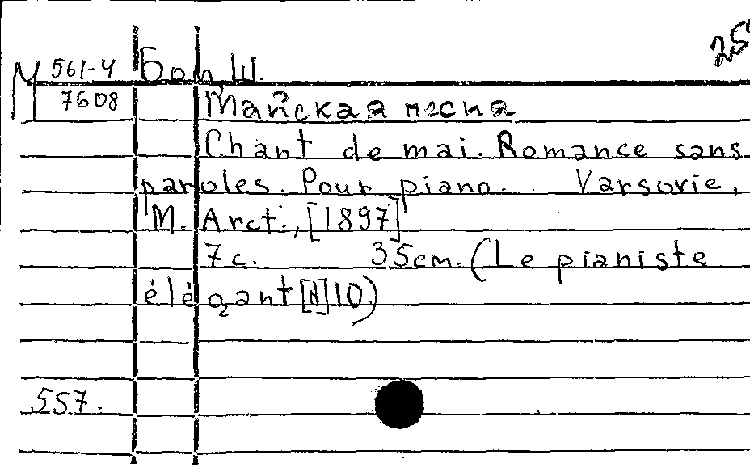 25
М 561-4 Бом, Ш.
7608 Майская песня
Chant de mai. Romance sans
paroles. Pour piano. Varsovie,
M. Arct., [1897]
7 с. 35cm. (Le pianiste
élégant [N] 10)
557.